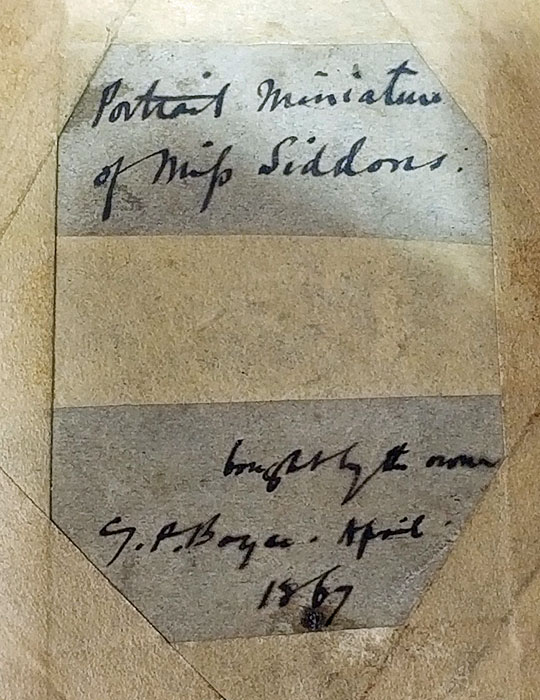 Portrait Miniature
of Miss Siddons.
bought by the owner
G. P. Boyce. April.
1867